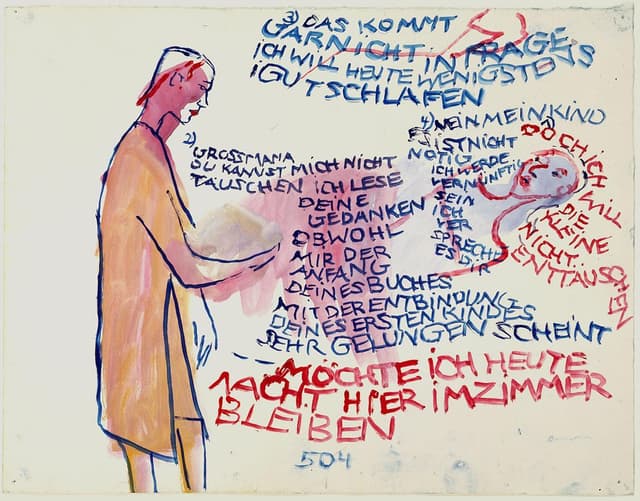 3) DAS KOMMT
GARNICHT IN FRAGE
ICH WILL HEUTE WENIGSTENS
GUT SCHLAFEN
2)
GROSSMAMA
DU KANNST MICH NICHT
TÄUSCHEN ICH LESE
DEINE
GEDANKEN
OBWOHL
MIR DER
ANFANG
DEINES BUCHES
MIT DER ENTBINDUNG
DEINES ERSTEN KINDES
SEHR GELUNGEN SCHEINT
MÖCHTE ICH HEUTE
NACHT HIER IM ZIMMER
BLEIBEN
4) NEIN MEIN KIND
ES IST NICHT
NÖTIG
ICH WERDE
VERNÜNFTIG
SEIN
ICH
VER
SPRECHE
ES DIR
DOCH ICH WILL
DIE
KLEINE
NICHT
ENTTÄUSCHEN
504